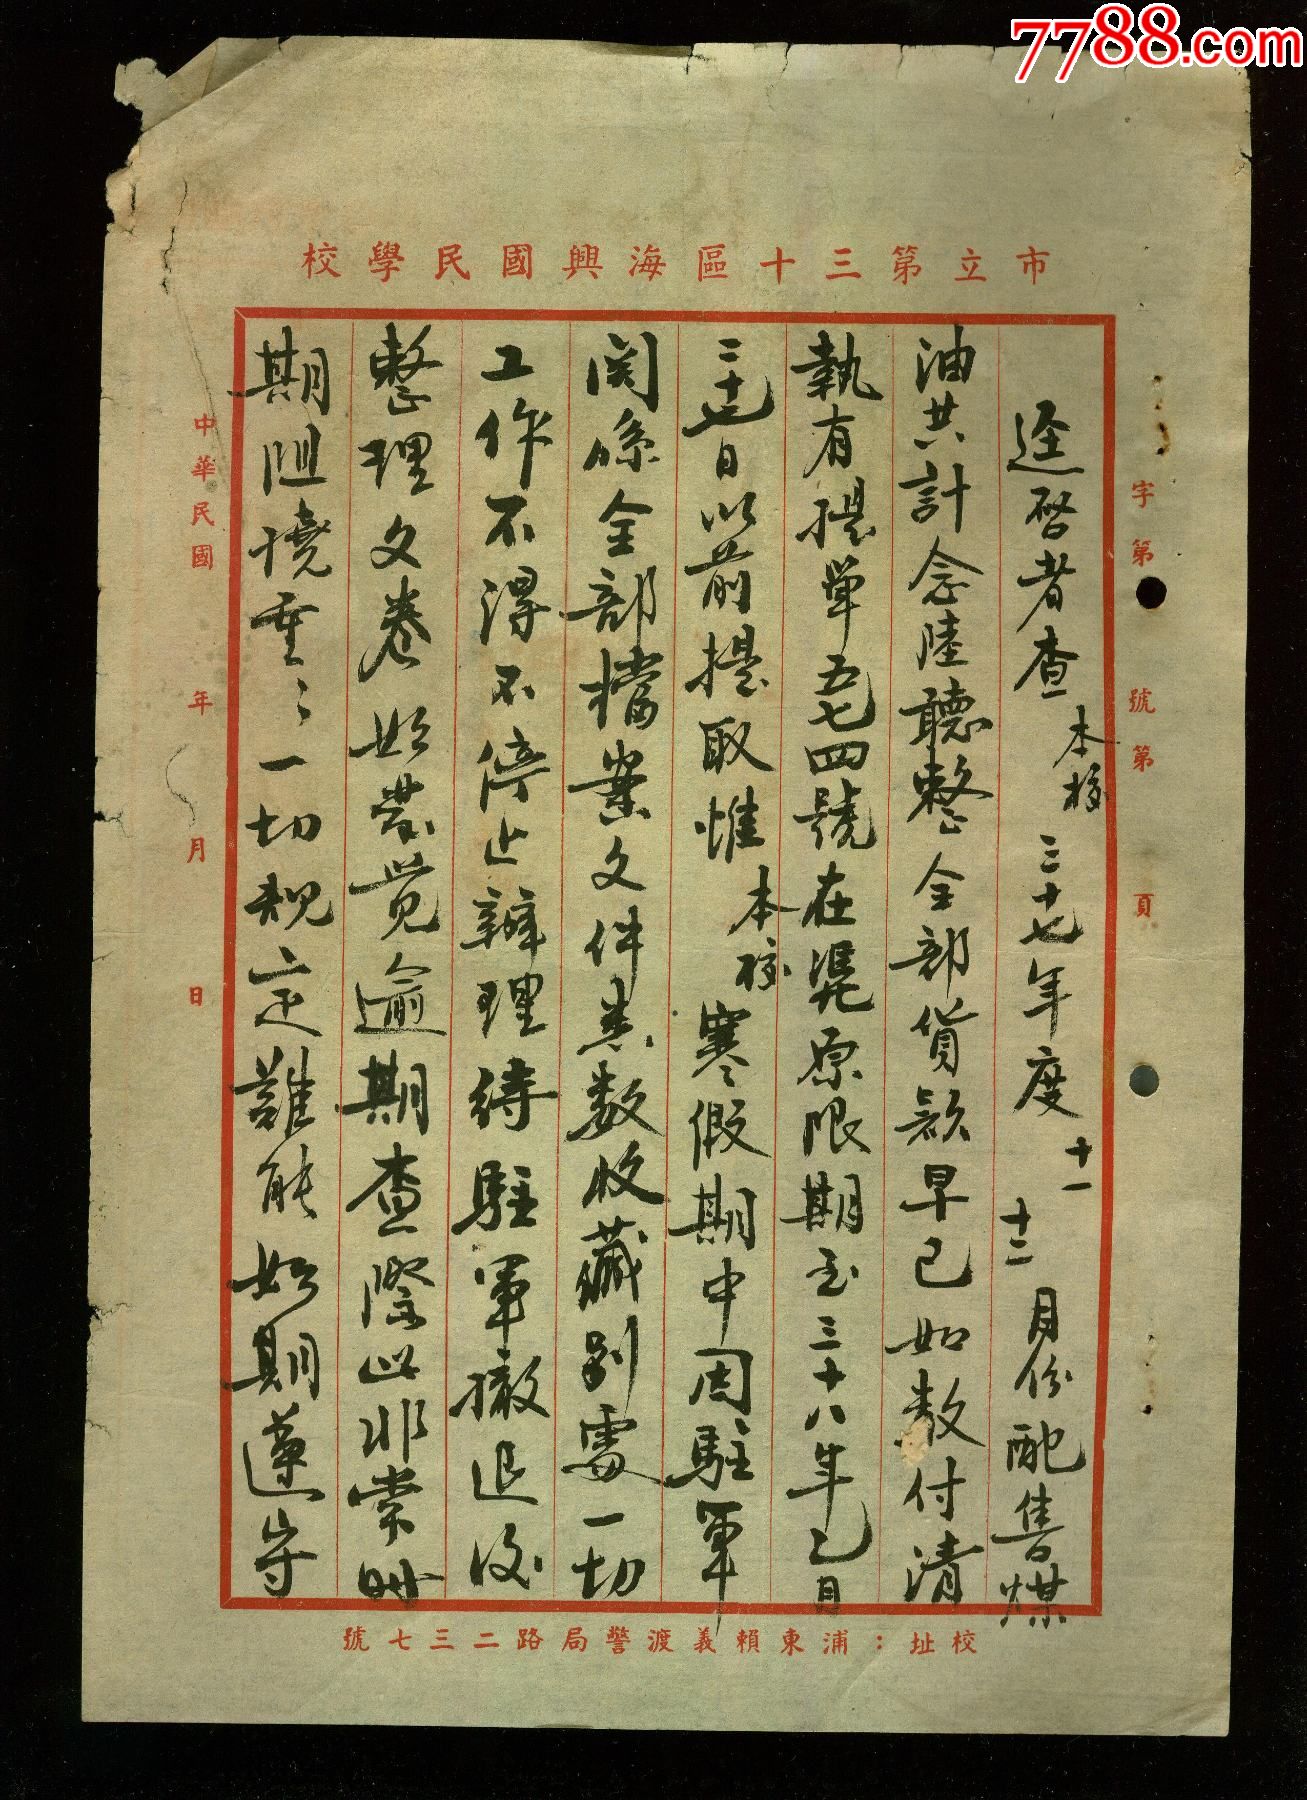 7788.com
市立第三十區海興國民學校
字第　號第　頁
逕啓者查本校三十七年度十一十二月份配售煤
油共計念陸聽整全部貨款早已如數付清
執有提單五七四號在凴原限期至三十八年乙月
二十七日以前提取惟本校寒假期中因駐軍
関係全部檔案文件悉數收藏別處一切
工作不得不停止辦理待駐軍撤退後
整理文卷始發覺逾期查際此非常時
期阻撓重重一切規定難能如期遵守
中華民國　年　月　日
校址：浦東賴義渡警局路二三七號